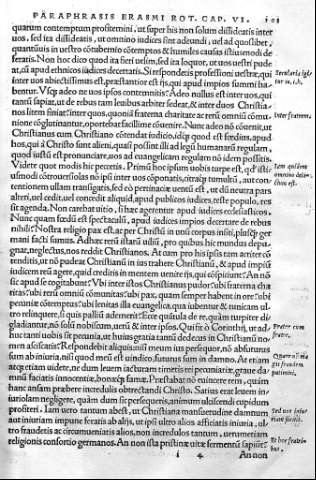 PARAPHRASIS ERASMI ROT. CAP. VI. 103
quarum contemptum profitemini, ut super his non solum dissideatis inter
uos, sed ita dissideatis, ut omnino iudices sint adeundi, uel ad quoslibet,
quantũuis in uestro cœtu contemptos & humiles causas istiusmodi de
feratis. Non hoc dico quod ita fieri uelim, sed ita loquor, ut uos uestri pude
at, cũ apud ethnicos iudices decertatis. Si respondetis professioni uestræ, qui
in ter uos abiectissimi est, præstantior est ijs, qui apud impios summi ha
bentur. Vsq; adeo ne uos ipsos contemnitis? Adeo nullus est inter uos, qui
tantũ sapiat, ut de rebus tam leuibus arbiter sedeat, & inter duos Christia-
nos litem finiat? inter quos, quoniã fraterna charitate ac rerũ omniũ cõmu-
nione cõglutinantur, oportebat facillime cõuenire. Nunc adeo nõ cõuenit, ut
Christianus cum Christiano cõtendat iudicio, idq; quod est fœdius, apud
hos, qui à Christo sunt alieni, quasi possint illi ad legũ humanarũ regulam,
quod iustũ est pronunciare, nos ad euangelicam regulam nõ idem possitis.
Videte quot modis hic peccetis. Primũ hoc ipsum uobis turpe est, q̃d eius
usmodi cõtrouersiolas nõ ipsi inter uos cõponatis, citraq; tumultũ, aut con-
tentionem ullam transigatis, sed eò pertinaciæ uentũ est, ut dũ neutra pars
alteri, uel cedit, uel concedit aliquid, apud publicos iudices, reste populo, res
sit agenda. Non cætera utitio, si hæc agerentur apud iudices ecclesiasticos.
Nunc quam fœdũ est spectaculũ, apud iudices impios decertare de rebus
nihili? Nostra religio pax est, ac per Christũ in unũ corpus insiti, plusq; ger
mani facti sumus. Adhæc rerũ istarũ uiliũ, pro quibus hic mundus depu-
gnat, neglectus, nos reddit Christianos. At cum pro his ipsis tam acriter cõ
tenditis, ut nõ pudeat Christianũ in ius trahere Christianũ, & apud impiũ
iudicem reũ agere, quid creditis in mentem uenire ijs, qui cõspiciunt? An nõ
sic apud se cogitabunt? Vbi inter istos Christianus pudor? ubi fraterna cha
ritas? ubi rerũ omniũ cõmunitas? ubi pax, quam semper habent in ore? ubi
pecuniæ cõtemptus? ubi lenitas illa euangelica, qua iubentur & tunicam ul-
tro relinquere, si quis palliũ ademerit? Ecce q̃uusula de re, quàm turpiter di-
gladiantur, nõ solũ nobiscum, uerũ & inter ipsos. Qui fit ò Corinthij, ut ad-
huc tanti uobis sit pecunia, ut huius gratia tantũ dedecus in Christianũ no-
men asciscatis? Respondebit aliquis mihi reum ius persequor, nõ abfuturus
sum ab iniuria, nisi quod meũ est uindico, futurus sum in damno. At etiam
atq; etiam uidete, ne dum leuem iacturam timetis rei pecuniariæ, graue da-
mnũ faciatis innocentiæ, bonæq; famæ. Præstabat nõ euincere rem, quàm
hanc ansam præbere incredulis obtrectandi Christo. Satius erat leuem in-
iuriolam negligere, quàm dum sic persequeris, animum ulciscendi cupidum
profiteri. Iam uero tantum abest, ut Christiana mansuetudine damnum
aut iniuriam impune feratis ab alijs, ut ipsi ultro alios afficiatis iniuria, ul-
tro fraudetis ac circumueniatis alios, non incredulos tantum, uerumetiam
religionis consortio germanos. An non ista pristinæ uitæ fermentũ sapiũt?
i 4 An non
Inter fratrem.
Et hoc fratri
bus.